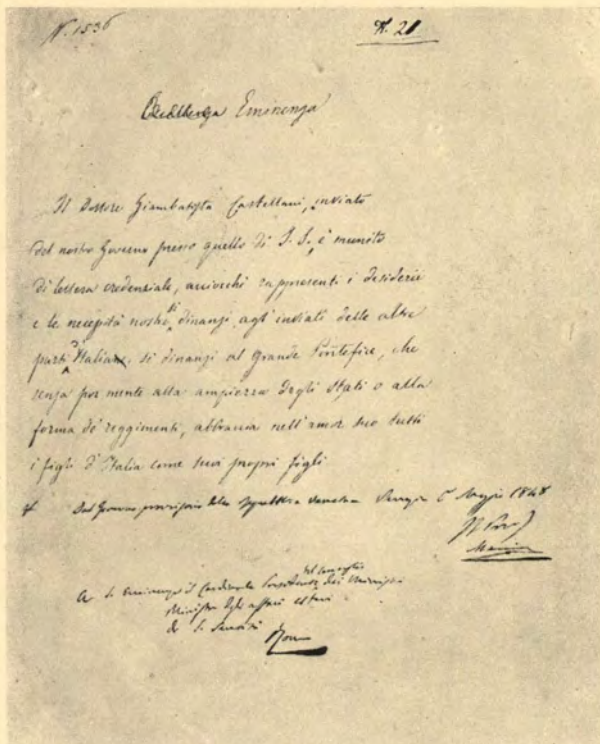 N. 1536
N. 21
Eminenza
Il Dottore Giambatista Castellani, inviato
del nostro Governo presso quello di S. S., è munito
di lettera credenziale, acciocchè rappresenti i desiderii
e le necessità nostre dinanzi agl' inviati delle altre
parti d' Italia, sì dinanzi al grande Pontefice, che
senza por mente alla ampiezza degli Stati o alla
forma de' reggimenti, abbraccia nell' amor suo tutti
i figli d' Italia come suoi propri figli
Dal Governo provvisorio della Repubblica Veneta Venezia 5 Maggio 1848
Il Pres
Manin
del consiglio
A S. Eminenza il Cardinale Presidente dei Ministri
Ministro degli affari esteri
di S. Santità
Roma